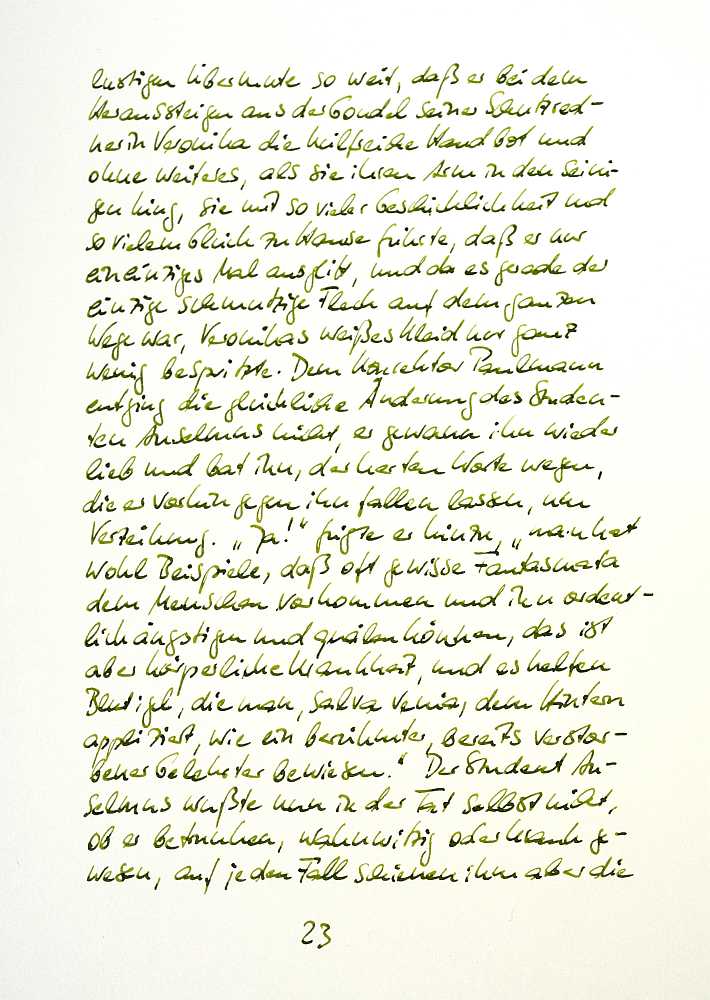 lustigen Übermute so weit, daß er bei dem
Heraussteigen aus der Gondel seiner Schutzred-
nerin Veronika die hilfreiche Hand bot und
ohne weiteres, als sie ihren Arm in den seini-
gen hing, sie mit so vieler Geschicklichkeit und
so vielem Glück zu Hause führte, daß er nur
ein einziges Mal ausglitt, und da es gerade der
einzige schmutzige Fleck auf dem ganzen
Wege war, Veronikas weißes Kleid nur ganz
wenig bespritzte. Dem Konrektor Paulmann
entging die glückliche Änderung des Studen-
ten Anselmus nicht, er gewann ihn wieder
lieb und bat ihn, der harten Worte wegen,
die er vorhin gegen ihn fallen lassen, um
Verzeihung. „Ja!“ fügte er hinzu, „man hat
wohl Beispiele, daß oft gewisse Fantasmata
dem Menschen vorkommen und ihn ordent-
lich ängstigen und quälen können, das ist
aber körperliche Krankheit, und es helfen
Blutigel, die man, salva venia, dem Hintern
appliziert, wie ein berühmter, bereits verstor-
bener Gelehrter bewiesen.“ Der Student An-
selmus wußte nun in der Tat selbst nicht,
ob er betrunken, wahnwitzig oder krank ge-
wesen, auf jeden Fall schienen ihm aber die
23